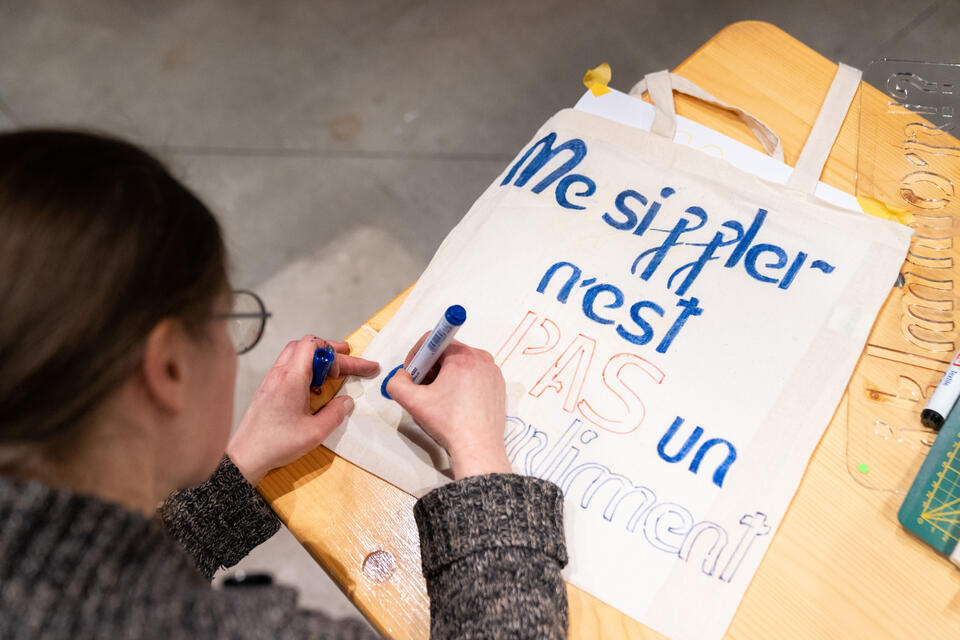 Me siffler
n'est
PAS un
compliment